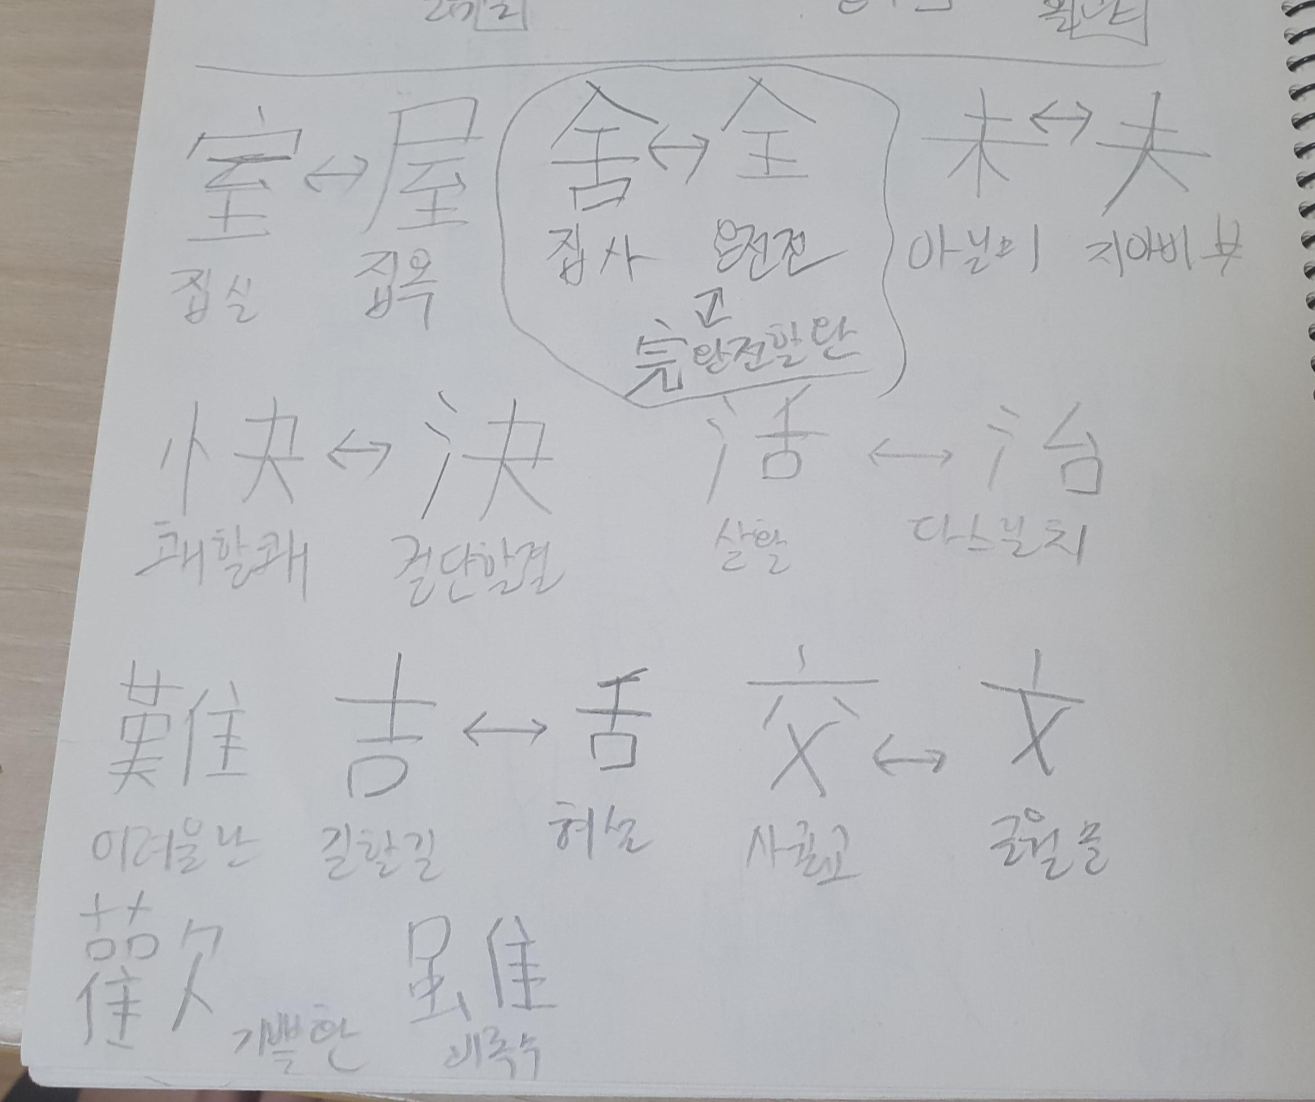 室 ↔ 屋 舍 ↔ 全 未 ↔ 夫
집실 집옥 집사 온전전 아닐미 지아비부
↕
完 완전할완
快 ↔ 決 活 ↔ 治
쾌할쾌 결단할결 살활 다스릴치
難 吉 ↔ 舌 交 ↔ 文
어려울난 길할길 혀설 사귈교 글월문
歡 雖
기쁠환 비록수